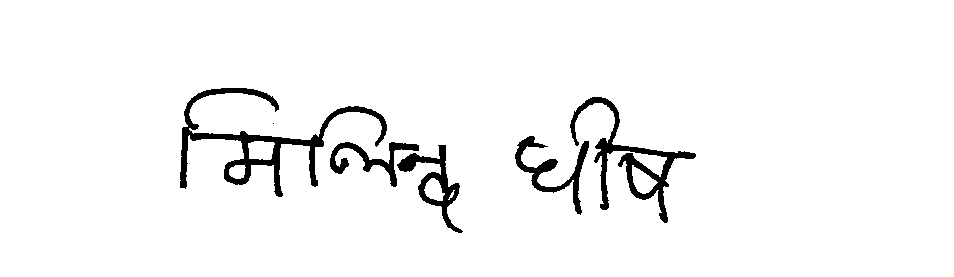 मिलिन्द धीष